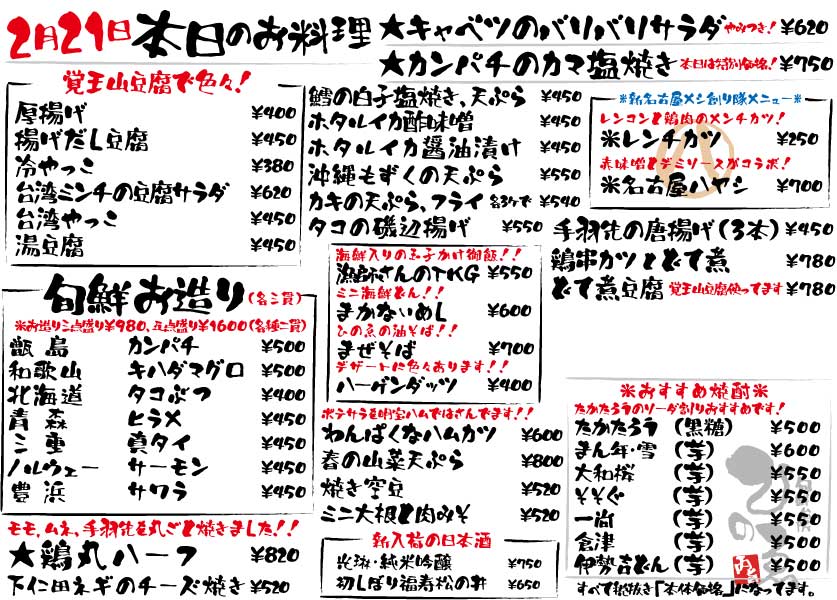 2月21日 本日のお料理
★キャベツのバリバリサラダ やみつき! ¥620
★カンパチのカマ塩焼き 本日は特別価格! ¥750
覚王山豆腐で色々!
厚揚げ ¥400
揚げだし豆腐 ¥450
冷やっこ ¥380
台湾ミンチの豆腐サラダ ¥620
台湾やっこ ¥450
湯豆腐 ¥450
旬鮮お造り(各二貫)
※お造り三点盛り¥980、五点盛り¥1600(各種二貫)
甑島 カンパチ ¥500
和歌山 キハダマグロ ¥500
北海道 タコぶつ ¥400
青森 ヒラメ ¥450
三重 真タイ ¥450
ノルウェー サーモン ¥450
豊浜 サワラ ¥450
モモ、ムネ、手羽先を丸ごと焼きました!!
★鶏丸ハーフ ¥820
下仁田ネギのチーズ焼き ¥520
鱈の白子塩焼き、天ぷら ¥450
ホタルイカ酢味噌 ¥450
ホタルイカ醤油漬け ¥450
沖縄もずくの天ぷら ¥550
カキの天ぷら、フライ 各3ケで ¥540
タコの磯辺揚げ ¥550
海鮮入りの玉子かけ御飯!!
漁師さんのTKG ¥550
ミニ海鮮どん!!
まかないめし ¥600
ひの魚の油そば!!
まぜそば ¥700
デザートに色々あります!!
ハーゲンダッツ ¥400
ポテサラを明宝ハムではさんでます!!
わんぱくなハムカツ ¥600
春の山菜天ぷら ¥800
焼き空豆 ¥520
ミニ大根と肉みそ ¥520
新入荷の日本酒
光浜・純米吟醸 ¥750
初しぼり福寿松の井 ¥650
※新名古屋メシ創り隊メニュー※
レンコンと鶏肉のメンチカツ!
※レンチカツ ¥250
赤味噌とデミソースがコラボ!
※名古屋ハヤシ ¥700
手羽先の唐揚げ(3本) ¥450
鶏串カツとどて煮 ¥780
どて煮豆腐 覚王山豆腐使ってます ¥780
※おすすめ焼酎※
たかたろうのソーダ割りおすすめです!
たかたろう (黒糖) ¥500
まん年・雪 (芋) ¥600
大和桜 (芋) ¥550
そそぐ (芋) ¥550
一尚 (芋) ¥500
倉津 (芋) ¥500
伊勢吉どん (芋) ¥550
すべて税抜き「本体価格」になってます。